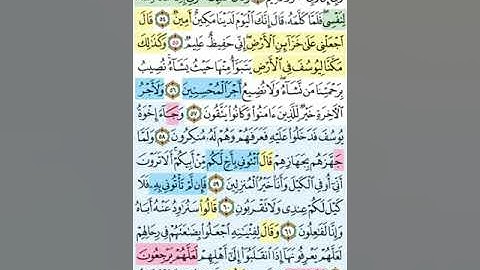 لِنَفْسِي ۖ فَلَمَّا كَلَّمَهُ قَالَ إِنَّكَ الْيَوْمَ لَدَيْنَا مَكِينٌ أَمِينٌ ٥٤ قَالَ
اجْعَلْنِي عَلَىٰ خَزَائِنِ الْأَرْضِ ۖ إِنِّي حَفِيظٌ عَلِيمٌ ٥٥ وَكَذَٰلِكَ
مَكَّنَّا لِيُوسُفَ فِي الْأَرْضِ يَتَبَوَّأُ مِنْهَا حَيْثُ يَشَاءُ ۚ نُصِيبُ
بِرَحْمَتِنَا مَن نَّشَاءُ ۖ وَلَا نُضِيعُ أَجْرَ الْمُحْسِنِينَ ٥٦ وَلَأَجْرُ
الْآخِرَةِ خَيْرٌ لِّلَّذِينَ آمَنُوا وَكَانُوا يَتَّقُونَ ٥٧ وَجَاءَ إِخْوَةُ
يُوسُفَ فَدَخَلُوا عَلَيْهِ فَعَرَفَهُمْ وَهُمْ لَهُ مُنكِرُونَ ٥٨ وَلَمَّا
جَهَّزَهُم بِجَهَازِهِمْ قَالَ ائْتُونِي بِأَخٍ لَّكُم مِّنْ أَبِيكُمْ ۚ أَلَا تَرَوْنَ
أَنِّي أُوفِي الْكَيْلَ وَأَنَا خَيْرُ الْمُنزِلِينَ ٥٩ فَإِن لَّمْ تَأْتُونِي بِهِ فَلَا
كَيْلَ لَكُمْ عِندِي وَلَا تَقْرَبُونِ ٦٠ قَالُوا سَنُرَاوِدُ عَنْهُ أَبَاهُ
وَإِنَّا لَفَاعِلُونَ ٦١ وَقَالَ لِفِتْيَانِهِ اجْعَلُوا بِضَاعَتَهُمْ فِي رِحَالِهِمْ
لَعَلَّهُمْ يَعْرِفُونَهَا إِذَا انقَلَبُوا إِلَىٰ أَهْلِهِمْ لَعَلَّهُمْ يَرْجِعُونَ